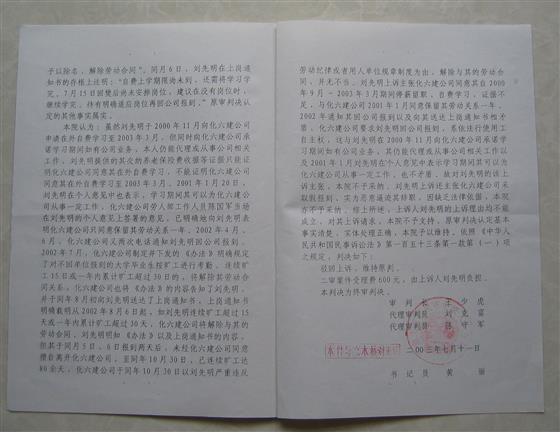 予以除名，解除劳动合同”。同月6日，刘先明在上岗通
知书的存根上注明：“自费上学期限尚未到，还需将学习学
完，7月15日回樊后尚未安排岗位，建议在没有岗位时，
继续学完，待有明确适应岗位再回公司报到。”原审判决认
定的其他事实属实。
本院认为：虽然刘先明于2000年11月向化六建公司
申请在外自费学习至2003年3月，但同时向化六建公司承
诺学习期间如有公司业务，本人仍能代理或从事公司相关
工作，刘先明提供的其交纳养老保险费收据等证据只能证
明化六建公司同意其在外自费学习，不能证明化六建公司
同意其在外自费学习至2003年3月。2001年1月20日，
刘先明在个人意见中也表示，学习期间其可以为化六建公
司从事一定工作，化六建公司劳人部工作人员国军当场
在刘先明的个人意见上签署的意见，已明确地向刘先明表
明化六建公司只同意保留其劳动关系一年。2002年4月、
6月，化六建公司又两次电话通知刘先明回公司报到。
2002年7月，化六建公司制定并下发的《办法》明确规定
了对不回单位报到的大学毕业生按旷工进行考勤，连续旷
工15日或一年内累计旷工超过30日的，将解除劳动合同
关系。化六建公司也将《办法》的内容告知了刘先明，
并于同年8月初向刘先明送达了上岗通知书，上岗通知书
明确载明从2002年8月6日起，如刘先明连续旷工超过15
天或一年内累计旷工超过30天，化六建公司将解除与其的
劳动合同，刘先明知《办法》以及上岗通知书的内容，
但其于同月5日、6日报到两天后，未经化六建公司同意
擅自离开化六建公司，至同年10月30日，已连续旷工达
80余天，化六建公司于同年10月30日以刘先明严重违反
劳动纪律或者用人单位规章制度为由，解除与其的劳动合
同，并无不当。刘先明上诉主张化六建公司同意其自2000
年9月－2003年3月期间停薪留职、自费学习，证据不
足，与化六建公司2001年1月同意保留其劳动关系一年、
2002年通知其回公司报到以及向其送达上岗通知书相矛
盾，化六建公司要求刘先明回公司报到，系依法行使用工
自主权，这与刘先明在2000年11月向化六建公司承诺
学习期间如有公司业务，其仍能代理或从事公司相关工作以
及2001年1月刘先明在个人意见中表示学习期间其可以为
化六建公司从事一定工作，也不矛盾。故对刘先明的该上
诉主张，本院不予采纳。刘先明上诉还主张化六建公司采
取以假报到、实为恶意逼迫其辞职，因缺乏法律依据，本院
亦不予采纳。综上所述，上诉人刘先明的上诉理由均不能
成立，对其上诉请求，本院不予支持。原审判决认定基本
事实清楚，实体处理正确，本院予以维持。依照《中华人
民共和国民事诉讼法》第一百五十三条第一款第（一）项
之规定，判决如下：
驳回上诉，维持原判。
二审案件受理费600元，由上诉人刘先明负担。
本判决为终审判决。
审判长 王少虎
代理审判员 刘克富
代理审判员 薛守军
二00三年七月十一日
书记员 黄丽